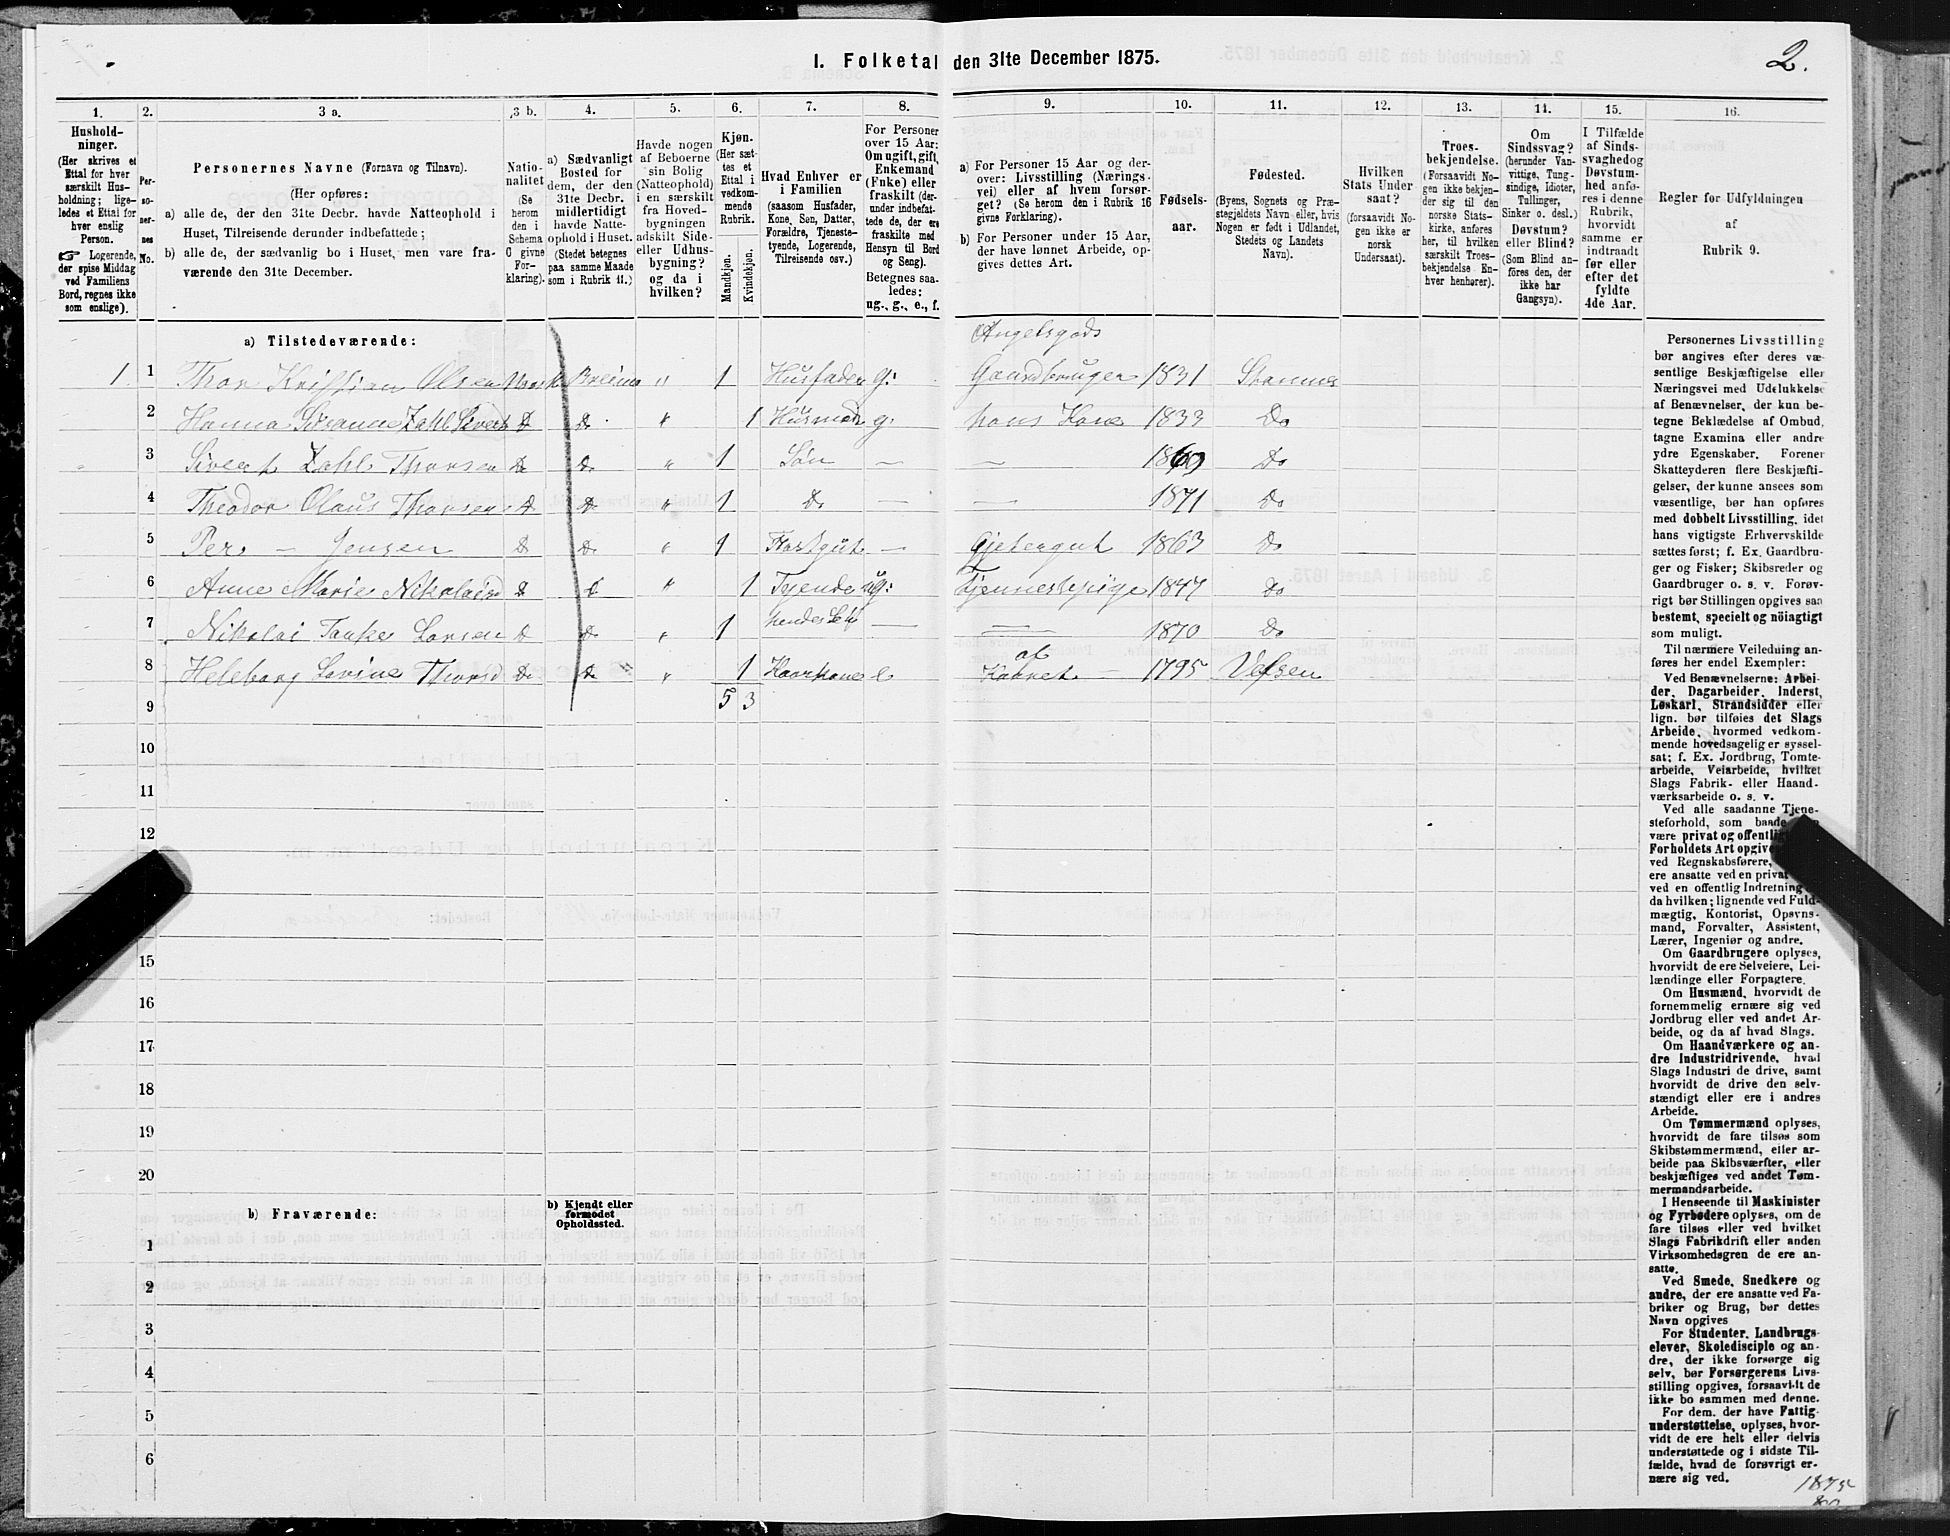 I. Folketal den 31te December 1875.
2.
1. 2. 3 a. 3 b. 4. 5. 6. 7. 8. 9. 10. 11. 12. 13. 14. 15. 16.
Hushold-
ninger.
(Her skrives et
Ettal for hver
særskilt Hus-
holdning; lige-
ledes et Ettal for
hver enslig
Person.
☞ Logerende,
der spise Middag
ved Familiens
Bord, regnes ikke
som enslige).
Per-
so-
ner-
nes
No.
Personernes Navne (Fornavn og Tilnavn).
(Her opføres:
a) alle de, der den 31te Decbr. havde Natteophold i
Huset, Tilreisende derunder indbefattede;
b) alle de, der sædvanlig bo i Huset, men vare fra-
værende den 31te December.
Natio-
nalitet
(Se
herom
den i
Schema
C givne
For-
klaring).
a) Sædvanligt
Bosted for
dem, der den
31te Decbr.
midlertidigt
havde Natte-
ophold i Huset.
(Stedet betegnes
paa samme Maade
som i Rubrik 11.)
Havde nogen
af Beboerne
sin Bolig
(Natteophold)
i en særskilt
fra Hoved-
bygningen
adskilt Side-
eller Udhus-
bygning?
og da i
hvilken?
Kjøn.
(Her sæt-
tes et
Ettal i
vedkom-
mende
Rubrik.
Mandkjøn.
Kvindekjøn.
Hvad Enhver er
i Familien
(saasom Husfader,
Kone, Søn, Datter,
Forældre, Tjeneste-
tyende, Logerende,
Tilreisende osv.)
For Personer
over 15 Aar:
Om ugift, gift,
Enkemand
(Enke) eller
fraskilt (der-
under indbefat-
tede de, der ere
fraskilte med
Hensyn til Bord
og Seng).
Betegnes saa-
ledes:
ug., g., e., f.
a) For Personer 15 Aar og der-
over: Livsstilling (Nærings-
vei) eller af hvem forsør-
get? (Se herom den i Rubrik 16
givne Forklaring).
b) For Personer under 15 Aar,
der have lønnet Arbeide, op-
gives dettes Art.
Fødsels-
aar.
Fødested.
(Byens, Sognets og Præ-
stegjeldets Navn eller, hvis
Nogen er født i Udlandet,
Stedets og Landets
Navn).
Hvilken
Stats Under-
saat?
(forsaavidt No-
gen ikke er
norsk
Undersaat).
Troes-
bekjendelse.
(Forsaavidt No-
gen ikke bekjen-
der sig til den
norske Stats-
kirke, anføres
her, til hvilken
særskilt Troes-
bekjendelse En-
hver henhører).
Om
Sindssvag?
(herunder Van-
vittige, Tung-
sindige, Idioter,
Tullinger,
Sinker o. desl.)
Døvstum?
eller Blind?
(Som Blind an-
føres den, der
ikke har
Gangsyn).
I Tilfælde
af Sinds-
svaghedog
Døvstum-
hed anfø-
res i denne
Rubrik,
hvorvidt
samme er
indtraadt
før eller
efter det
fyldte
4de Aar.
Regler for Udfyldningen
af
Rubrik 9.
a) Tilstedeværende:
1 1 Thor Kristian Olsen Norsk " 1 Husfader g: Gaardbruger 1831
2 Hanna Do " 1 Husmor g. hans Kone 1833 Do
3 Sivert Zahl Thorsen Do Do " 1 Søn — — 1860 Do
4 Theodor Olaus Thorsen Do Do " 1 Do — — 1871 Do
5 Per — Jensen Do Do " 1 — Gjetergut 1863 Do
6 Anne Marie Nikolaisd Do Do " 1 Tyende ug: Tjenestepige 1847 Do
7 Nikolai Larsen Do Do " 1 hendes — — 1870 Do
8 Do Do " 1 e af — 1795 Vefsen
9 5 3
10
11
12
15
16
17
18
19
20
b) Fraværende:
b) Kjendt eller
formodet
Opholdssted.
1
2
3
4
5
6
Personernes Livsstilling
bør angives efter deres væ-
sentlige Beskjæftigelse eller
Næringsvei med Udelukkelse
af Benævnelser, der kun be-
tegne Beklædelse af Ombud,
tagne Examina eller andre
ydre Egenskaber. Forener
Skatteyderen flere Beskjæfti-
gelser, der kunne ansees som
væsentlige, bør han opføres
med dobbelt Livsstilling, idet
hans vigtigste Erhvervskilde
sættes først; f. Ex. Gaardbru-
ger og Fisker; Skibsreder og
Gaardbruger o. s. v. Forøv-
rigt bør Stillingen opgives saa
bestemt, specielt og nöiagtigt
som muligt.
Til nærmere Veiledning an-
føres her endel Exempler:
Ved Benævnelserne: Arbei-
der, Dagarbeider, Inderst,
Løskarl, Strandsidder eller
lign. bør tilføies det Slags
Arbeide, hvormed vedkom-
mende hovedsagelig er syssel-
sat; f. Ex. Jordbrug, Tomte-
arbeide, Veiarbeide, hvilket
Slags Fabrik- eller Haand-
værksarbeide o. s. v.
Ved alle saadanne Tjene-
steforhold, som baade
være privat og offentlig
Forholdets Art opgives
ved Regnskabsførere,
ere ansatte ved en privat
ved en offentlig Indretning
da hvilken; lignende ved Fuld-
mægtig, Kontorist, Opsyns-
mand, Forvalter, Assistent,
Lærer, Ingeniør og andre.
Om Gaardbrugere oplyses,
hvorvidt de ere Selveiere, Lei-
lændinge eller Forpagtere.
Om Husmænd, hvorvidt de
fornemmelig ernære sig ved
Jordbrug eller ved andet Ar-
beide, og da af hvad Slags.
Om Haandværkere og an-
dre Industridrivende, hvad
Slags Industri de drive, samt
hvorvidt de drive den selv-
stændigt eller ere i andres
Arbeide.
Om Tømmermænd oplyses,
hvorvidt de fare tilsøs som
Skibstømmermænd, eller ar-
beide paa Skibsværfter, eller
beskjæftiges ved andet Tøm-
mermandsarbeide.
I Henseende til Maskinister
og Fyrbødere oplyses, om de
fare tilsøs eller ved hvilket
Slags Fabrikdrift eller anden
Virksomhedsgren de ere an-
satte.
Ved Smede, Snedkere og
andre, der ere ansatte ved Fa-
briker og Brug, bør dettes
Navn opgives
For Studenter, Landbrugs-
elever, Skoledisciple og an-
dre, der ikke forsørge sig
selv, bør Forsørgerens Livs-
stilling opgives, forsaavidt de
ikke bo sammen med denne.
For dem, der have Fattig-
understøttelse, oplyses, hvor-
vidt de ere helt eller delvis
understøttede og i sidste Til-
fælde, hvad de forøvrigt er-
nære sig ved.
1875